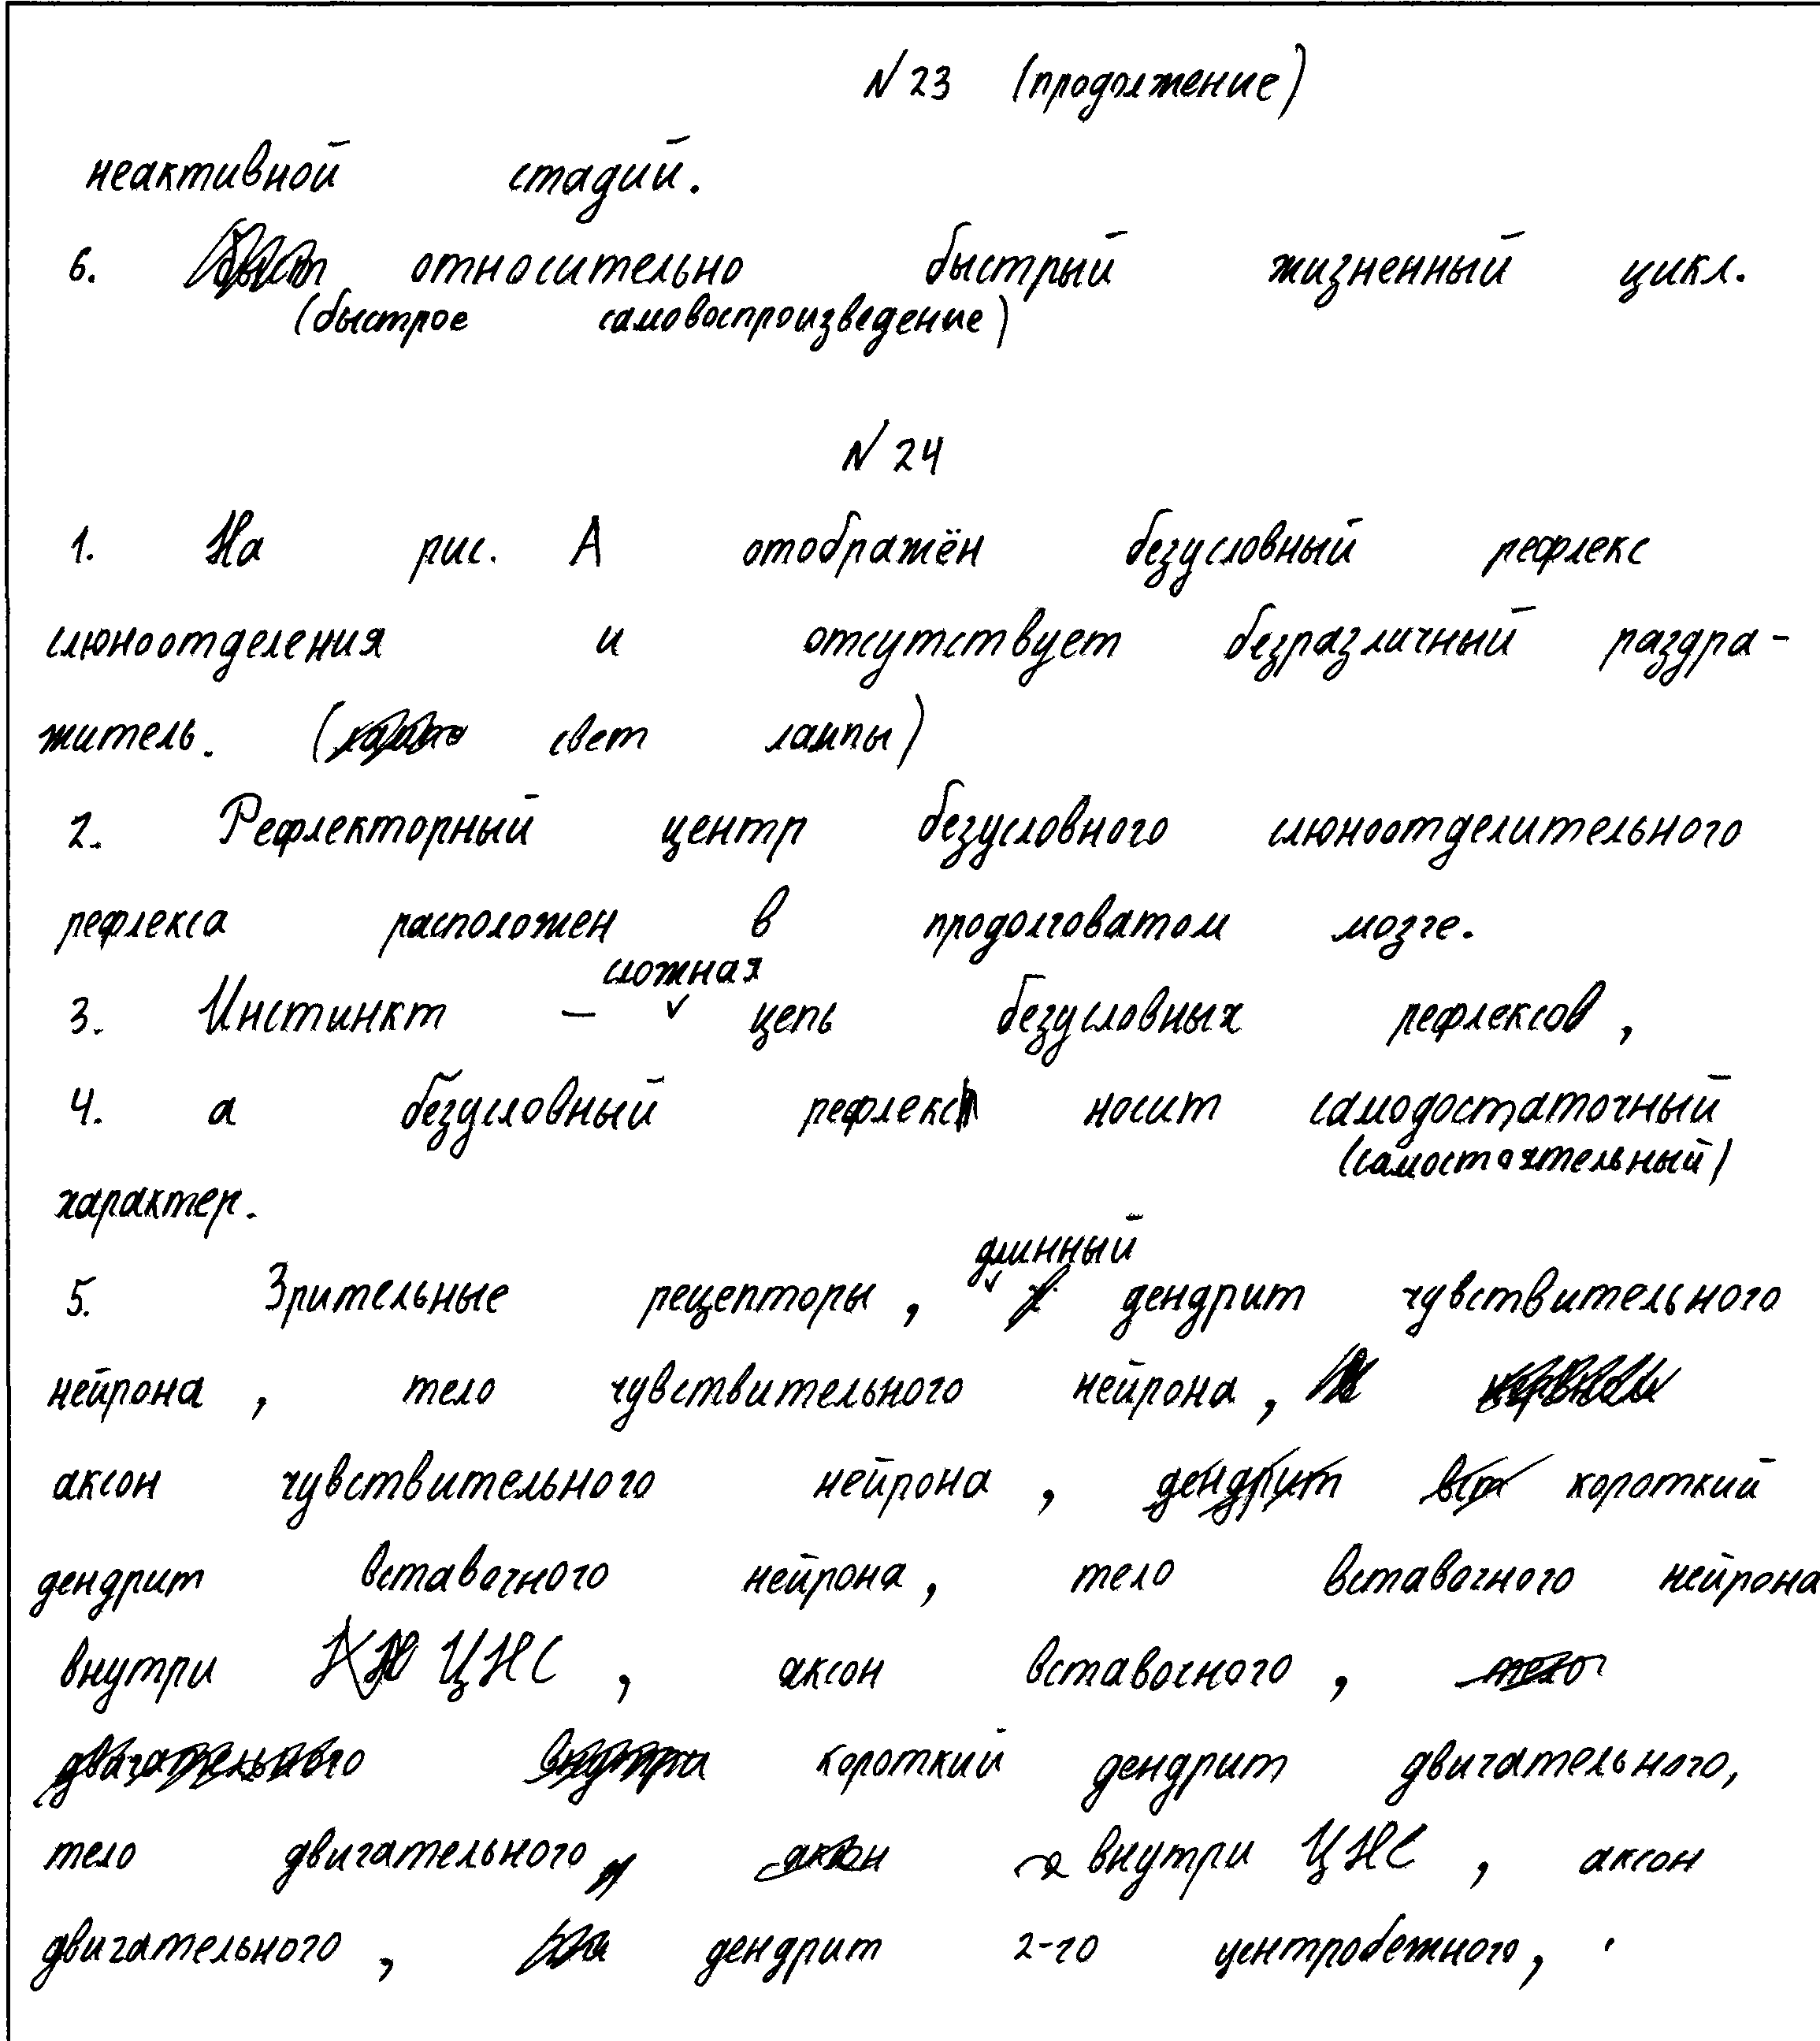 N 23 (продолжение)
неактивной стадий.
6. относительно быстрый жизненный цикл.
(быстрое самовоспроизведение)
N 24
1. На рис. А отображён безусловный рефлекс
слюноотделения и отсутствует безразличный раздра-
житель. (свет лампы)
2. Рефлекторный центр безусловного слюноотделительного
рефлекса расположен в продолговатом мозге.
сложная
3. Инстинкт – ✓ цепь безусловных рефлексов,
4. а безусловный рефлекс носит самодостаточный
(самостоятельный)
характер.
длинный
5. Зрительные рецепторы, ✓ дендрит чувствительного
нейрона, тело чувствительного нейрона,
аксон чувствительного нейрона, дендрит вст короткий
дендрит вставочного нейрона, тело вставочного нейрона
внутри ЦНС, аксон вставочного, тело
двигательного внутри короткий дендрит двигательного,
тело двигательного аксон внутри ЦНС, аксон
двигательного, дендрит 2-го центробежного,